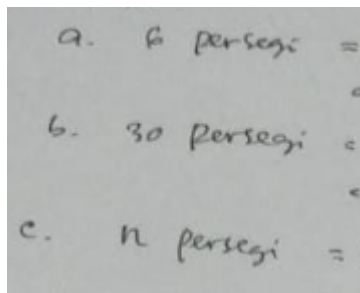 a. 6 persegi =
=
b. 30 persegi =
=
c. n persegi =